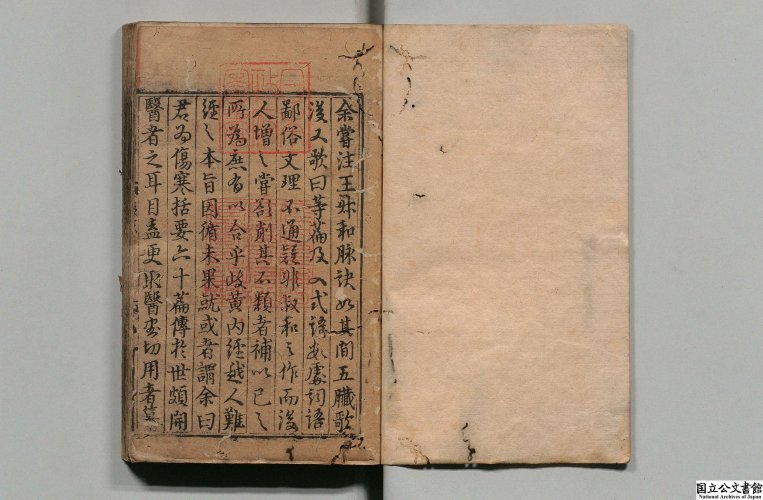 余嘗注王叔和脉訣以其間五臟歌
後又歌曰等篇及入式謌數處詞語
鄙俗文理不通疑非叔和之作而後
人增之嘗欲削其不類者補以已之
所為庶有以合乎歧黄内經越人難
經之本旨因循未果就或者謂余曰
君為傷寒括要六十篇傳於世頗開
醫者之耳目盍更取醫書切用者
国立公文書館
National Archives of Japan